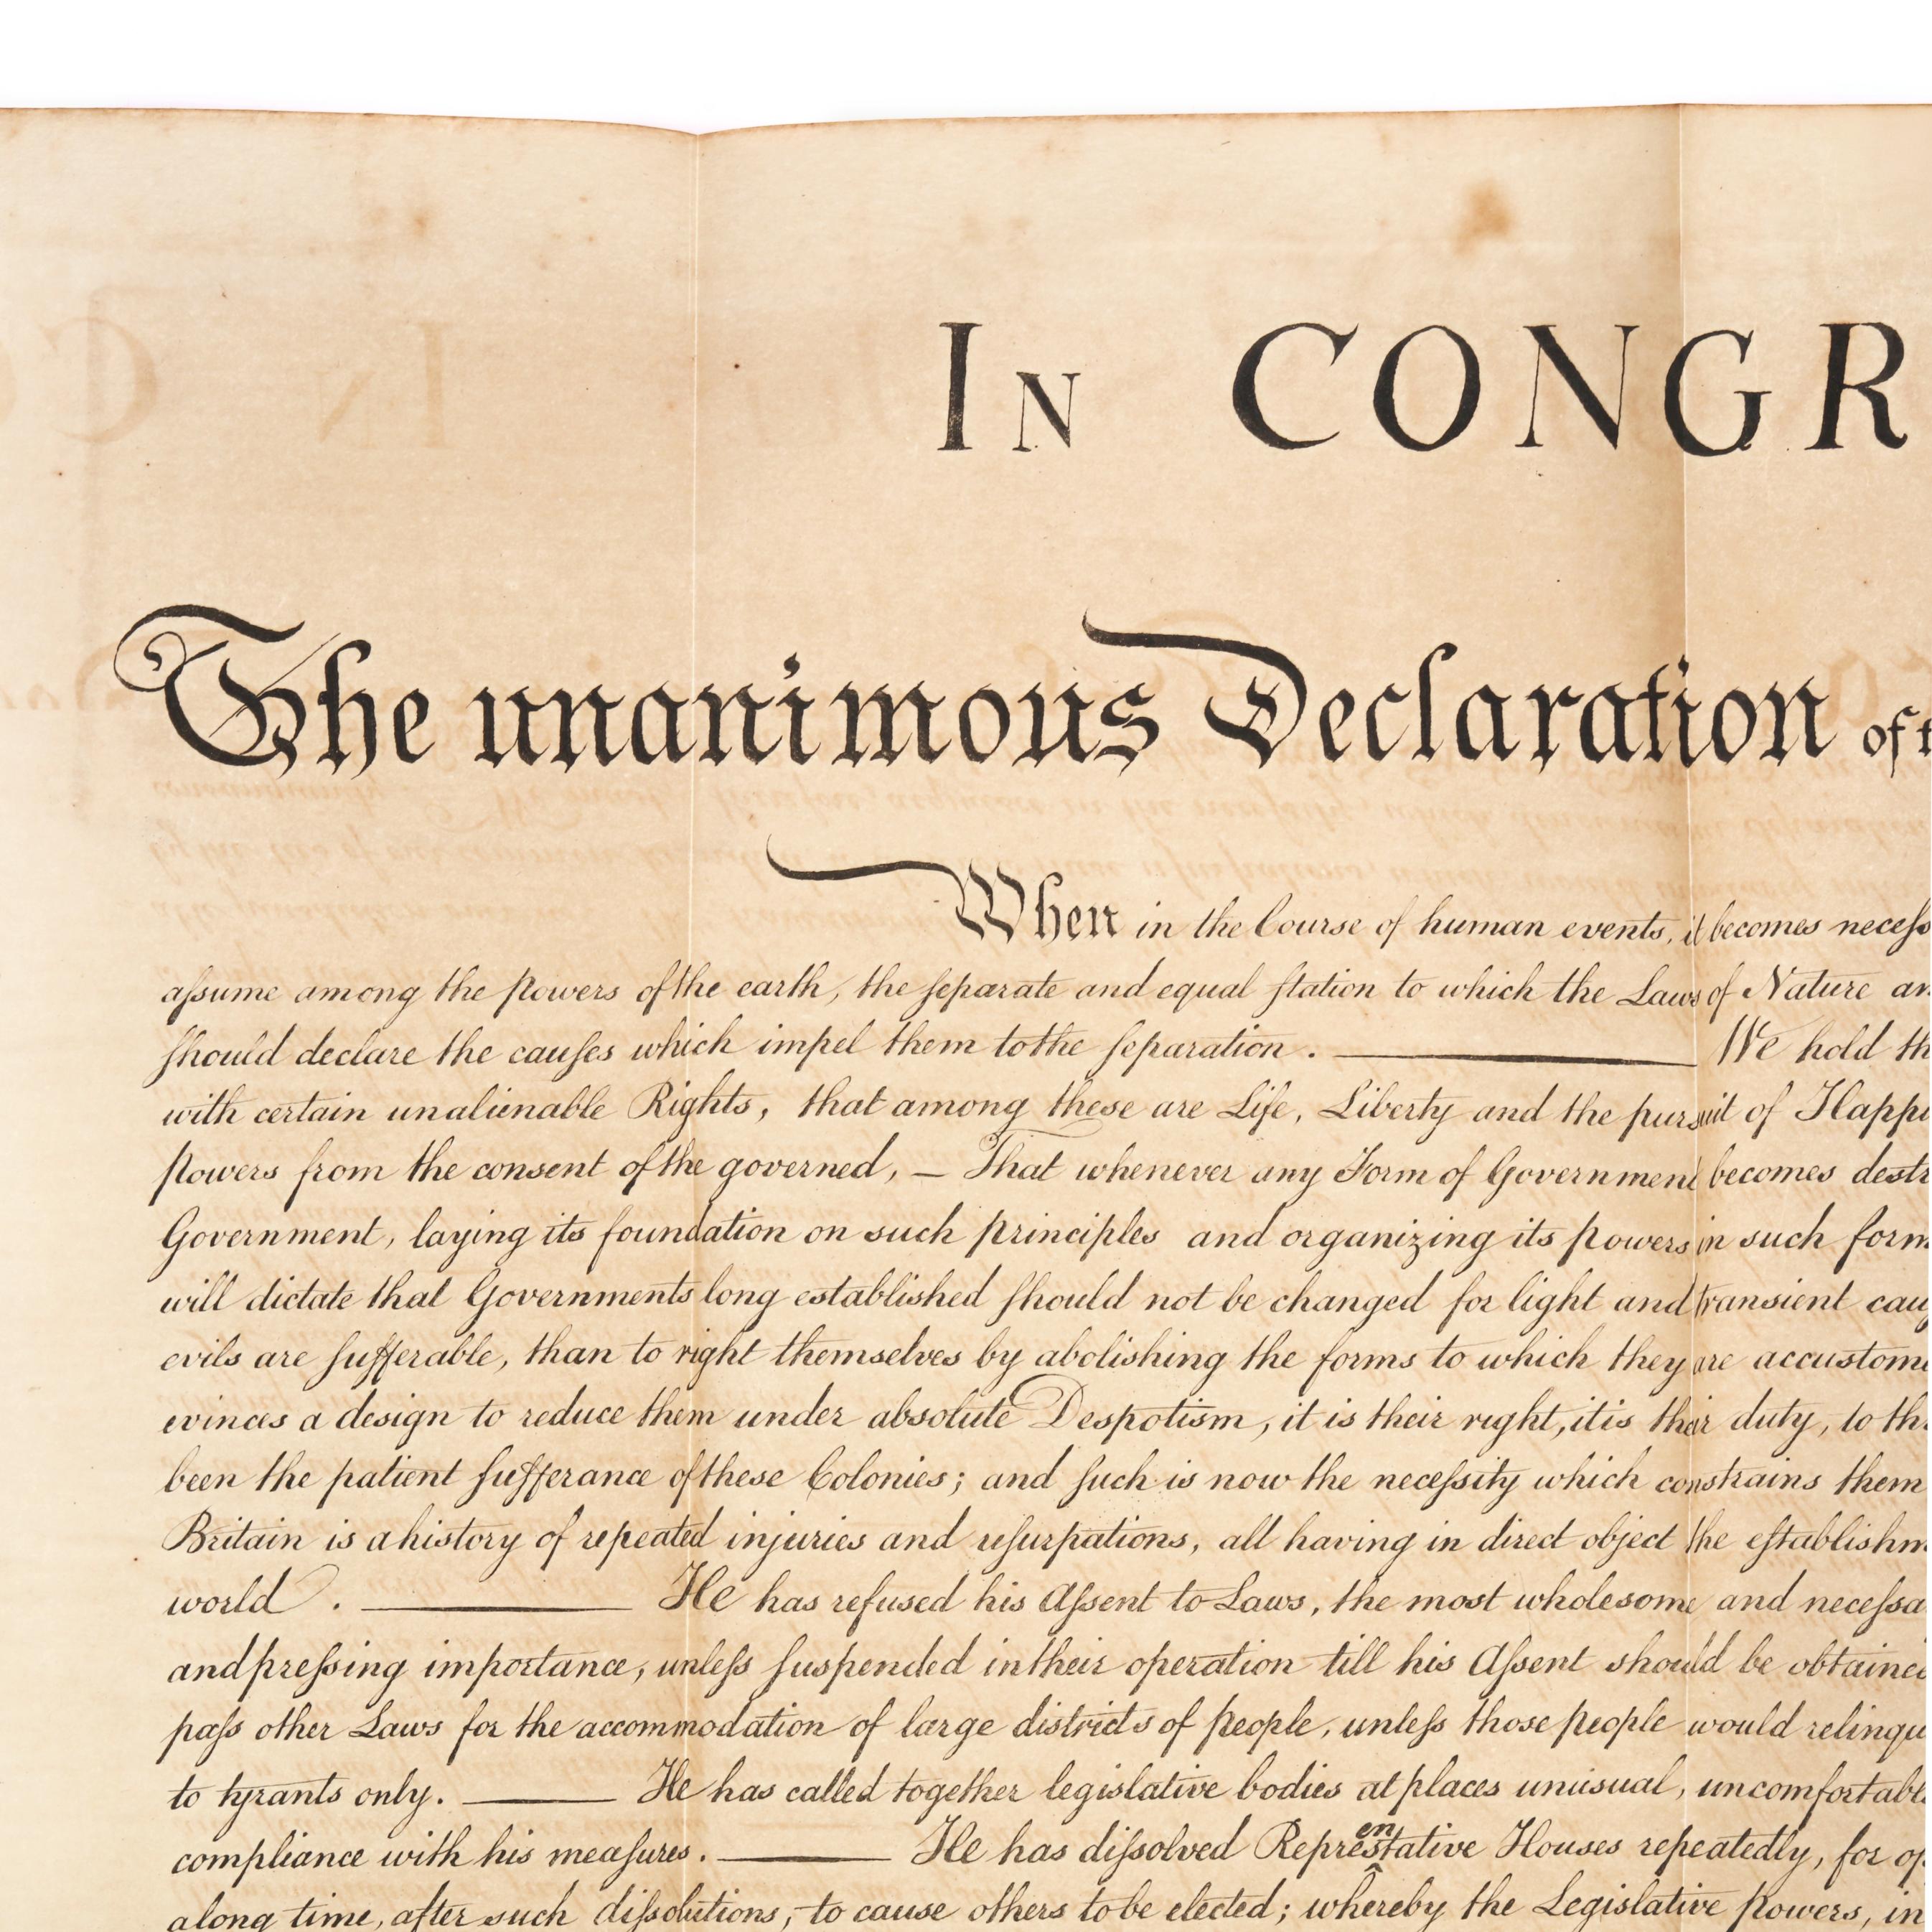 In CONGR
The unanimous Declaration of t
When in the Course of human events, it becomes necess
assume among the Powers of the earth, the separate and equal station to which the Laws of Nature an
should declare the causes which impel them to the separation. We hold th
with certain unalienable Rights, that among these are Life, Liberty and the pursuit of Happi
powers from the consent of the governed, — That whenever any Form of Government becomes destr
Government, laying its foundation on such principles and organizing its powers in such form
will dictate that Governments long established should not be changed for light and transient cau
evils are sufferable, than to right themselves by abolishing the forms to which they are accustome
evinces a design to reduce them under absolute Despotism, it is their right, it is their duty, to th
been the patient sufferance of these Colonies; and such is now the necessity which constrains them
Britain is a history of repeated injuries and usurpations, all having in direct object the establishm
world. He has refused his Assent to Laws, the most wholesome and necessa
and pressing importance, unless suspended in their operation till his Assent should be obtained
pass other Laws for the accommodation of large districts of people, unless those people would relinqu
to tyrants only. He has called together legislative bodies at places unusual, uncomfortabl
compliance with his measures. He has dissolved Representative Houses repeatedly, for op
a long time, after such dissolutions, to cause others to be elected; whereby the Legislative Powers, in